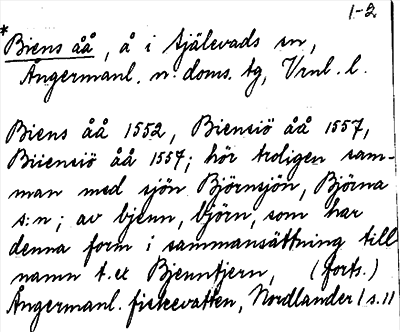 1-2
*Biens åå, å i Själevads sn,
Ångermanl. n. doms. tg, Vrnl. l.
Biens åå 1552, Biensiö åå 1557,
Biiensiö åå 1557; hör troligen sam-
man med sjön Björnsjön, Björna
s:n; av bjenn, björn, som har
denna form i sammansättning till
namn t.ex Bjenntjern, (forts.)
Ångermanl. fiskevatten, Nordlander (s.11